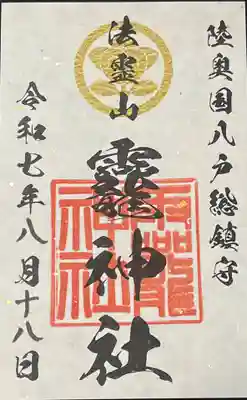 陸奥国八戸総鎮守
法靈山
龗神社
令和七年八月十八日